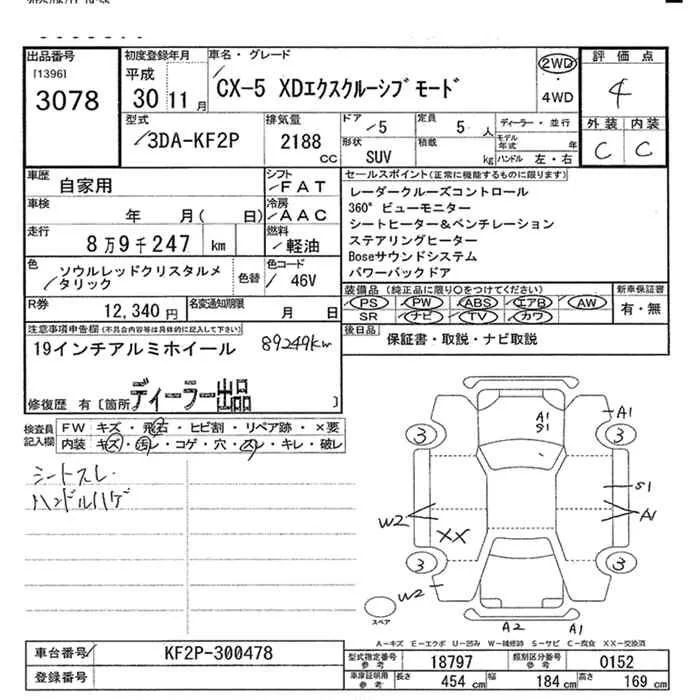 出品番号
[1396]
3078
初度登録年月
平成
30 11 月
車名・グレード
CX-5 XDエクスクルーシブモード
2WD
・
4WD
評価点
4
外装 内装
C C
型式
3DA-KF2P
排気量
2188
cc
ドア
5
定員
5 人
ディーラー・並行
モデル
年式 年
形状
SUV
積載
kg
ハンドル 左・右
車歴
自家用
シフト
FAT
車検
年 月( 日)
冷房
AAC
走行
8万9千247 km
燃料
軽油
セールスポイント(正常に機能するものに限ります)
レーダークルーズコントロール
360°ビューモニター
シートヒーター&ベンチレーション
ステアリングヒーター
Boseサウンドシステム
パワーバックドア
色
ソウルレッドクリスタルメ
タリック
色替
色コード
46V
R券
12,340 円
名変通知期限
月 日
装備品(純正品に限り○をつけてください)
PS PW ABS エアB AW
SR ナビ TV カワ
新車保証書
有・無
後日品
保証書・取説・ナビ取説
注意事項申告欄(不具合内容等は具体的に記入して下さい)
19インチアルミホイール 89249km
ディーラー出品
修復歴 有〔箇所 〕
検査員
記入欄
FW キズ・飛石・ヒビ割・リペア跡・×要
内装 キズ・汚れ・コゲ・穴・スレ・キレ・破レ
シートスレ
ハンドルハゲ
A1
S1
A1
3
3
S1
A1
W2
XX
3
3
W2
スペア
A2
A1
A-キズ E-エクボ U-凹み W-補修跡 S-サビ C-腐食 XX-交換済
車台番号
KF2P-300478
登録番号
型式指定番号
参考
18797
類別区分番号
参考
0152
車庫証明用
参考
長さ
454 cm
幅
184 cm
高さ
169 cm